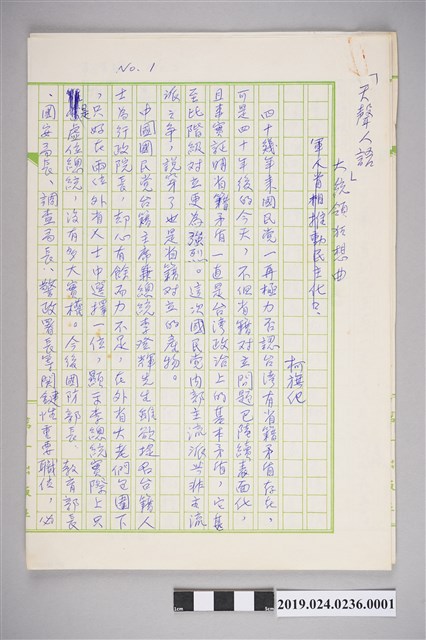 No. 1
「天聲人語」
大統領狂想曲
軍人首相推動民主化?
柯旗化
四十幾年來國民党一再極力否認台湾有省籍矛盾存在,
可是四十年後的今天,不但省籍対立問題已陸續表面化,
且事實証明省籍矛盾一直是台湾政治上的基本矛盾,它甚
至比階級対立更為強烈。這次國民党内部主流派与非主流
派之爭,說穿了也是省籍対立的產物。
中國國民党台籍主席兼總統李登輝先生雖欲提名台籍人
士為行政院長,却心有餘而力不足,在外省大老們包圍下
,只好在兩位外省人士中選擇一位,顯示李總統實際上只
是虛位總統,沒有多大實權。今後國防部長、教育部長
、國安局長、調查局長、警政署長等関鍵性重要職位,必
1cm
5cm
2019.024.0236.0001